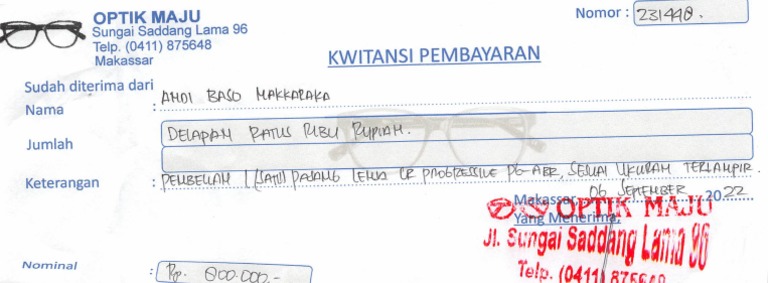 OPTIK MAJU
Sungai Saddang Lama 96
Telp. (0411) 875648
Makassar
Nomor : 231448.
KWITANSI PEMBAYARAN
Sudah diterima dari
Nama : ANDI BASO MAKKARAKA
Jumlah DELAPAN RATUS RIBU RUPIAH.
Keterangan : PEMBELIAN 1 (SATU) PASANG LENSA CR PROGRESSIVE PG-ABR, SESUAI UKURAN TERLAMPIR.
Makassar, 06 SEPTEMBER 2022
Yang Menerima,
OPTIK MAJU
Jl. Sungai Saddang Lama 96
Telp. (0411) 875648
Nominal : Rp. 800.000.-